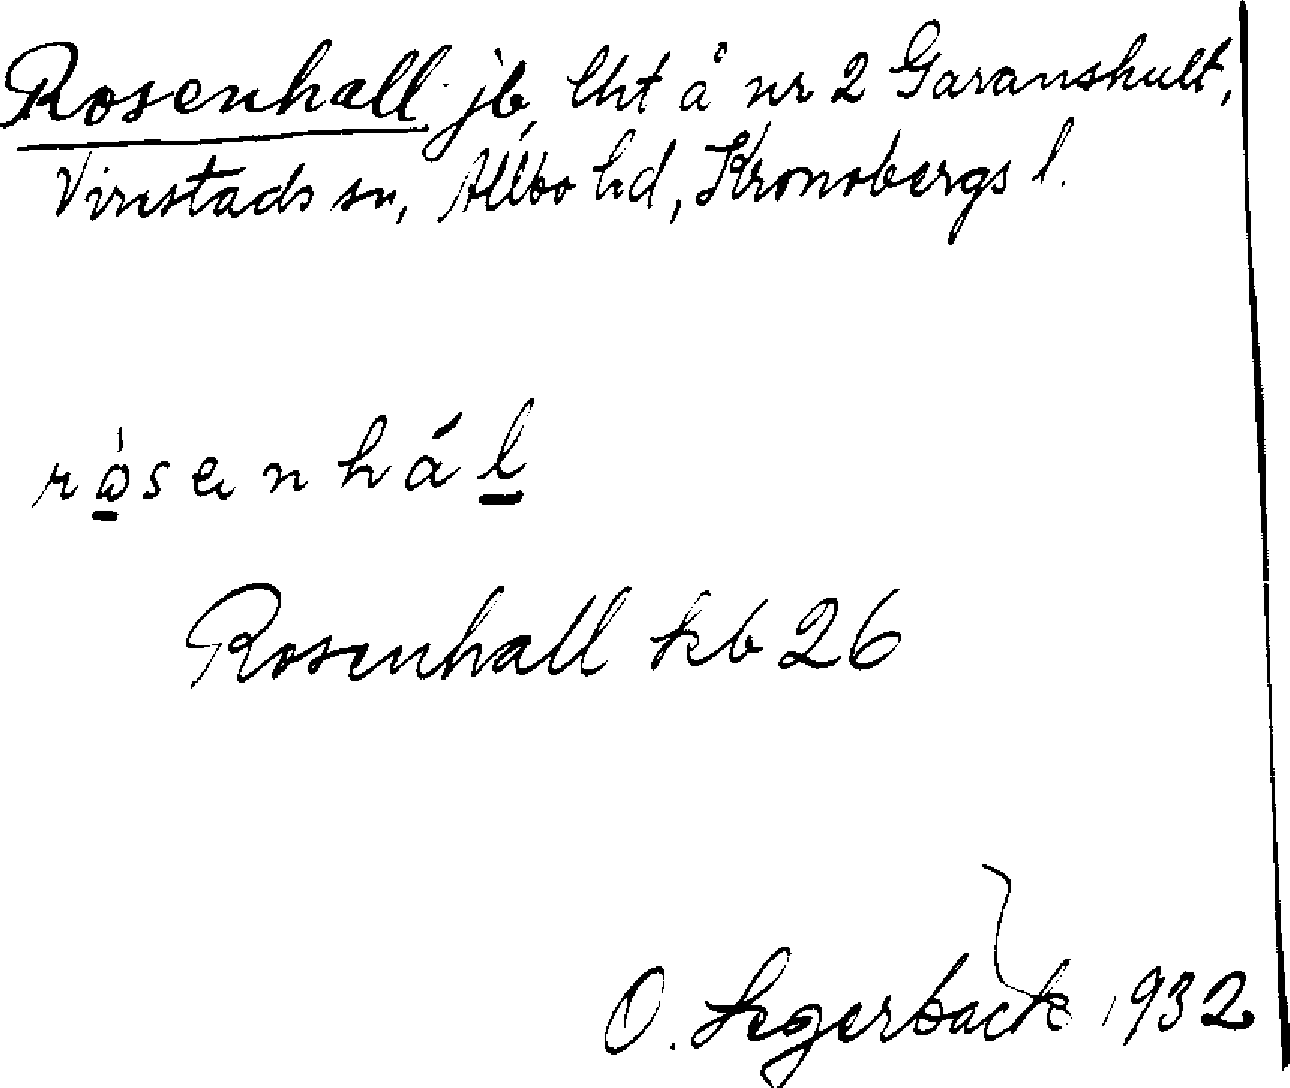 Rosenhall jb, lht å nr 2 Garanshult,
Virestads sn, Allbo hd, Kronobergs l.
rò̱senhál̲
Rosenhall kb 26
O. Segerbäck 1932